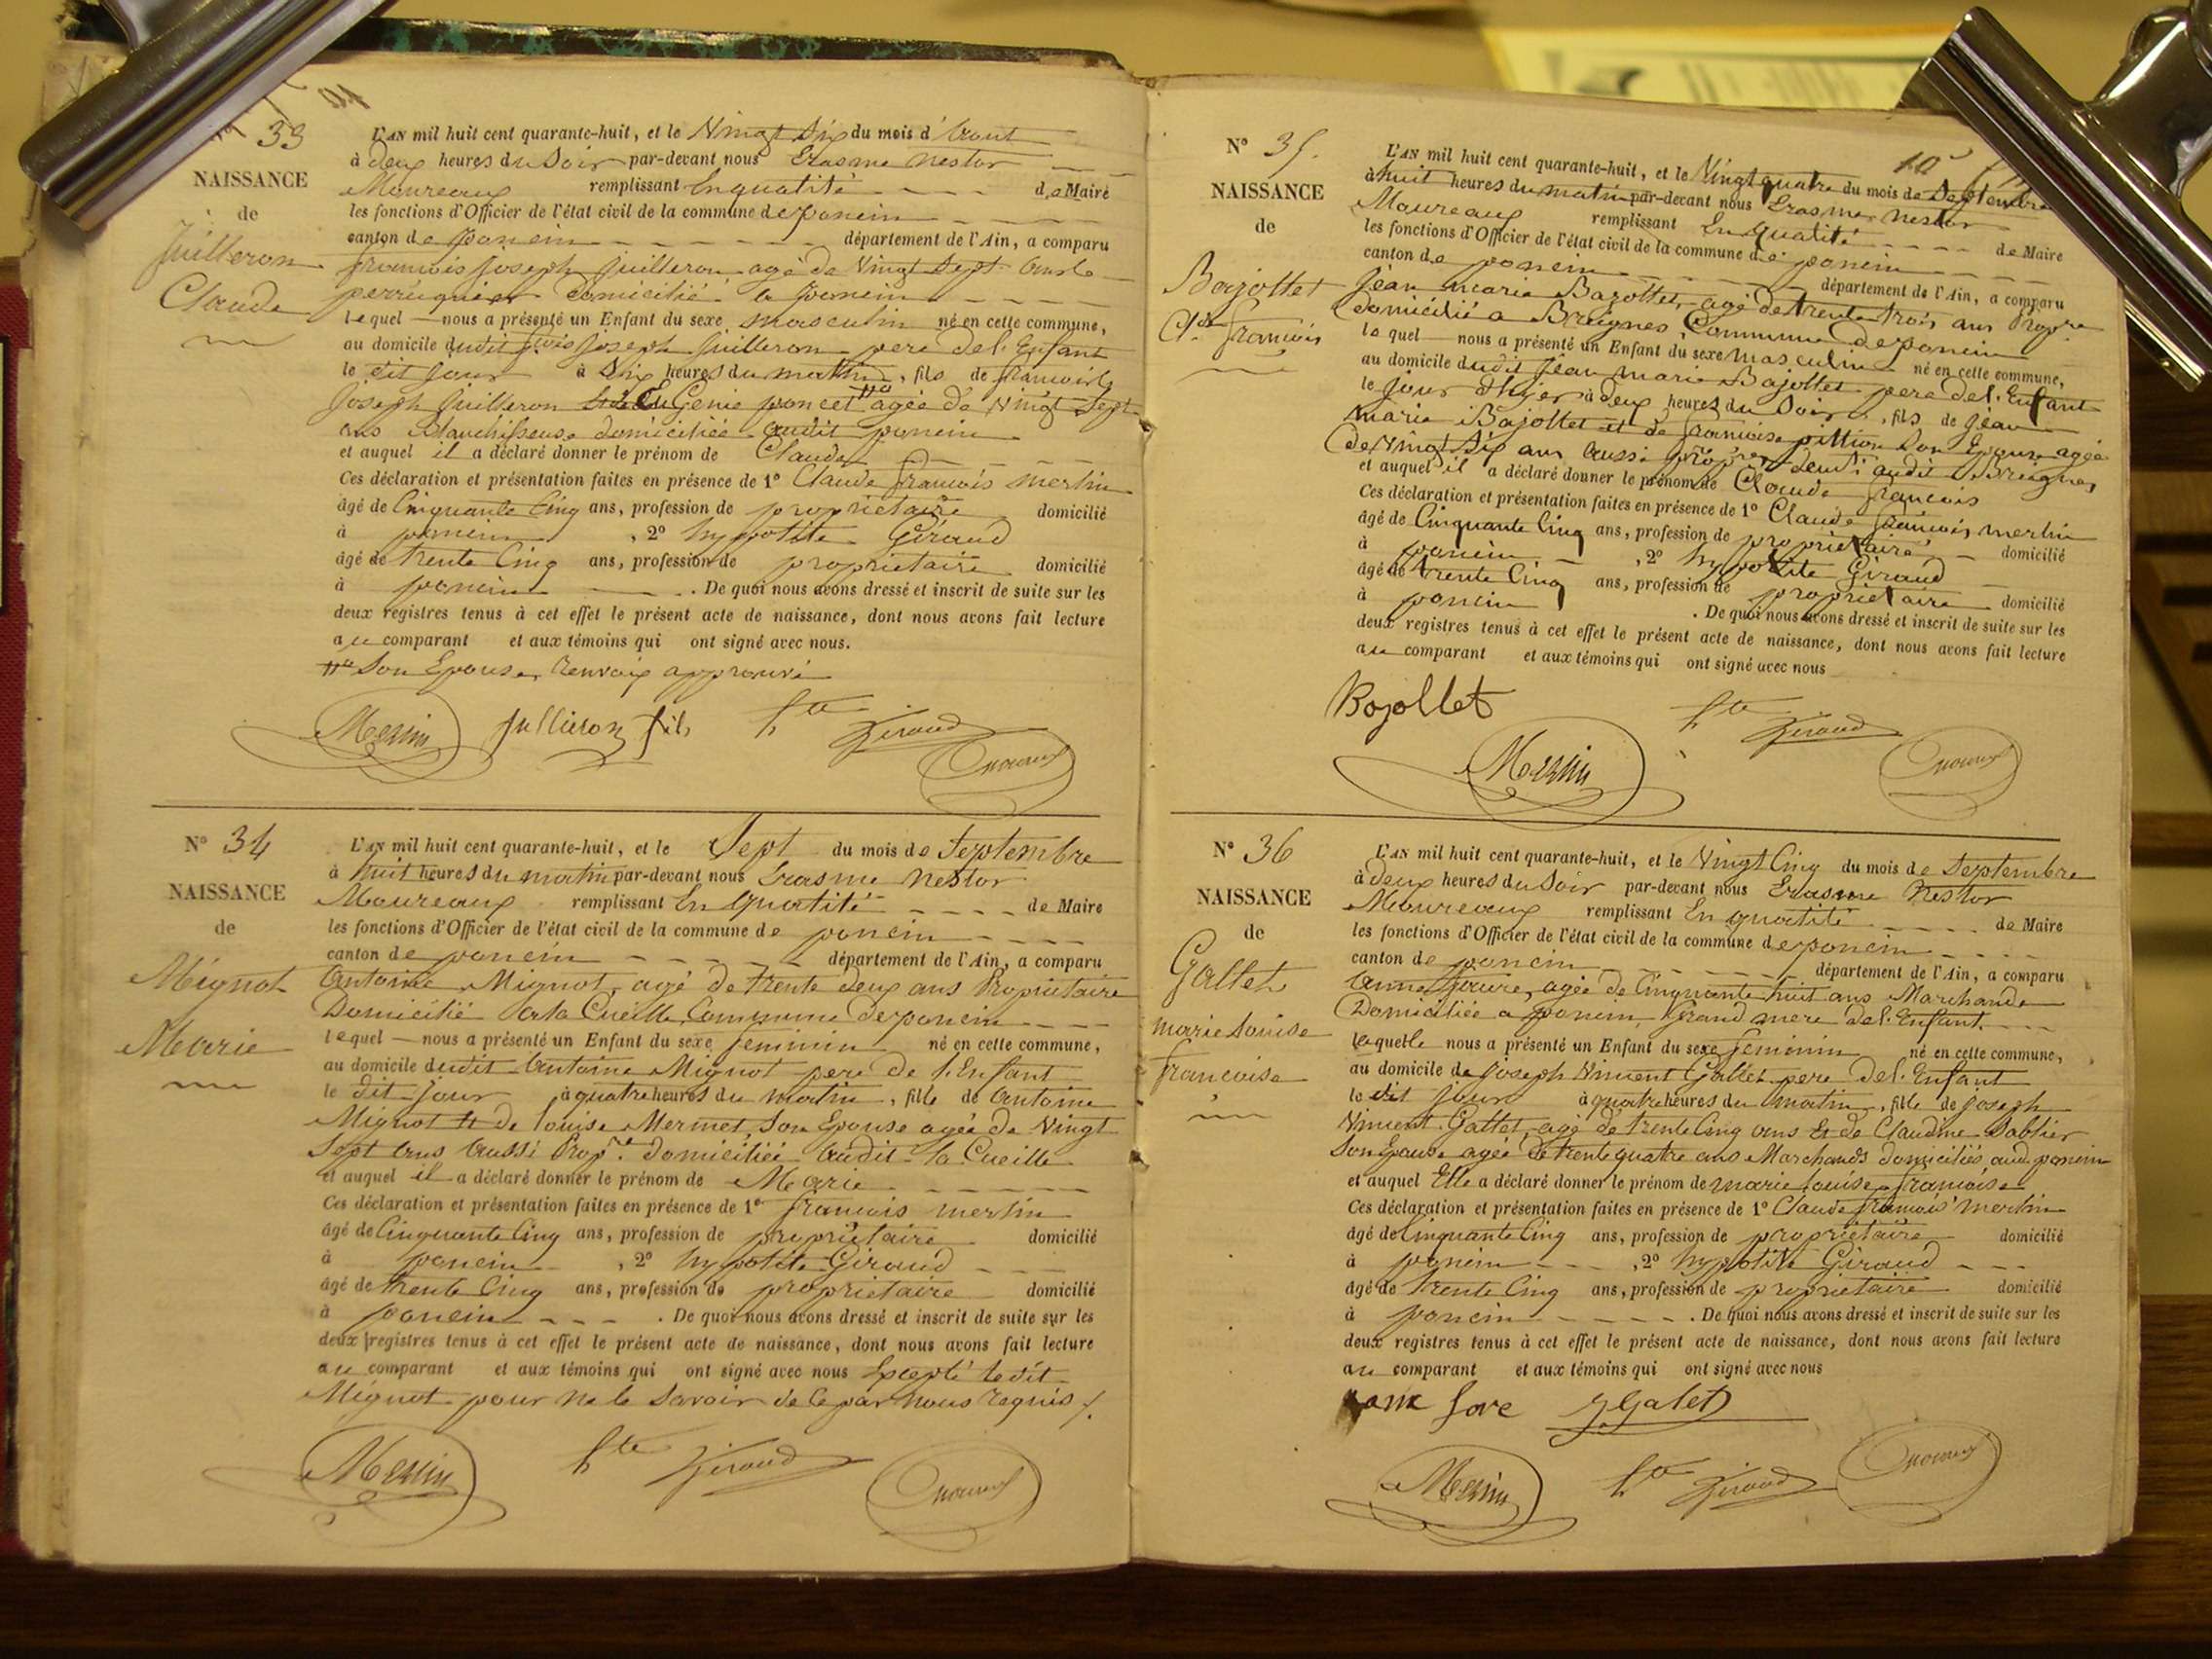 N° 33
NAISSANCE
de
Juilleron
Claude
L'AN mil huit cent quarante-huit, et le Vingt Six du mois d'Aout
à deux heures du Soir par-devant nous Erasme Nestor
Moureaux remplissant En qualité de Maire
les fonctions d'Officier de l'état civil de la commune de poncin
canton de poncin département de l'Ain, a comparu
francois Joseph Juilleron agé de Vingt Sept ans
perruquier domicilié a poncin
lequel nous a présenté un Enfant du sexe masculin né en cette commune,
au domicile dudit fcois Joseph Juilleron pere del'Enfant
le dit Jour à Six heures du matin, fils de francois
Joseph Juilleron Et de Eugenie poncet agée de Vingt Sept
ans Blanchisseuse domiciliée audit poncin
et auquel il a déclaré donner le prénom de Claude
Ces déclaration et présentation faites en présence de 1° Claude francois merlin
âgé de Cinquante Cinq ans, profession de proprietaire domicilié
à poncin, 2° hypolite Giraud
âgé de trente Cinq ans, profession de proprietaire domicilié
à poncin. De quoi nous avons dressé et inscrit de suite sur les
deux registres tenus à cet effet le présent acte de naissance, dont nous avons fait lecture
au comparant et aux témoins qui ont signé avec nous.
Son Epouse, renvoix approuvé
Merlin Jullieron fils hte Giraud
N° 34
NAISSANCE
de
Mignot
Marie
L'AN mil huit cent quarante-huit, et le Sept du mois de Septembre
à huit heures du matin par-devant nous Erasme Nestor
Moureaux remplissant En qualité de Maire
les fonctions d'Officier de l'état civil de la commune de poncin
canton de poncin département de l'Ain, a comparu
Antoine Mignot, agé de trente deux ans Propriétaire
Domicilié a la Cueille Commune de poncin
lequel nous a présenté un Enfant du sexe feminin né en cette commune,
au domicile dudit Antoine Mignot pere de l'Enfant
le dit jour à quatre heures du matin, fille de Antoine
Mignot Et de louise Mermet, Son Epouse agée de Vingt
Sept ans Aussi Prop.re domiciliée Audit la Cueille
et auquel il a déclaré donner le prénom de Marie
Ces déclaration et présentation faites en présence de 1° francois merlin
âgé de Cinquante Cinq ans, profession de proprietaire domicilié
à poncin, 2° hypolite Giraud
âgé de trente Cinq ans, profession de proprietaire domicilié
à poncin. De quoi nous avons dressé et inscrit de suite sur les
deux registres tenus à cet effet le présent acte de naissance, dont nous avons fait lecture
au comparant et aux témoins qui ont signé avec nous Excepté ledit
Mignot pour ne le Savoir de Ce par nous requis
Merlin hte Giraud
N° 35.
NAISSANCE
de
Bajollet
Cl.de francois
L'AN mil huit cent quarante-huit, et le Vingt quatre du mois de Septembre
à huit heures du matin par-devant nous Erasme Nestor
Moureaux remplissant En qualité de Maire
les fonctions d'Officier de l'état civil de la commune de poncin
canton de poncin département de l'Ain, a comparu
Jean marie Bajollet, agé de trente trois ans Propre
Domicilié a Breignes Commune de poncin
lequel nous a présenté un Enfant du sexe masculin né en cette commune,
au domicile dudit Jean marie Bajollet pere del'Enfant
le jour d'hyer à deux heures du Soir, fils de Jean
marie Bajollet et de francoise pittion Son Epouse agée
de Vingt Six ans aussi propre audit Breignes
et auquel il a déclaré donner le prénom de Claude francois
Ces déclaration et présentation faites en présence de 1° Claude francois merlin
âgé de Cinquante Cinq ans, profession de proprietaire domicilié
à poncin, 2° hypolite Giraud
âgé de trente Cinq ans, profession de proprietaire domicilié
à poncin. De quoi nous avons dressé et inscrit de suite sur les
deux registres tenus à cet effet le présent acte de naissance, dont nous avons fait lecture
au comparant et aux témoins qui ont signé avec nous
Bajollet hte Giraud
Merlin
N° 36
NAISSANCE
de
Gallet
marie Louise
francoise
L'AN mil huit cent quarante-huit, et le Vingt Cinq du mois de Septembre
à deux heures du Soir par-devant nous Erasme Nestor
Moureaux remplissant En qualité de Maire
les fonctions d'Officier de l'état civil de la commune de poncin
canton de poncin département de l'Ain, a comparu
Anne, agée de Cinquante huit ans Marchande
Domiciliée a poncin, Grand mere del'Enfant
laquelle nous a présenté un Enfant du sexe feminin né en cette commune,
au domicile de Joseph Vincent Gallet pere del'Enfant
le dit jour à quatre heures du matin, fille de Joseph
Vincent Gallet, agé de trente Cinq ans Et de Claudine Sablier
Son Epouse agée de trente quatre ans Marchands domiciliés aud. poncin
et auquel Elle a déclaré donner le prénom de marie louise francoise
Ces déclaration et présentation faites en présence de 1° Claude francois merlin
âgé de Cinquante Cinq ans, profession de proprietaire domicilié
à poncin, 2° hypolite Giraud
âgé de trente Cinq ans, profession de proprietaire domicilié
à poncin. De quoi nous avons dressé et inscrit de suite sur les
deux registres tenus à cet effet le présent acte de naissance, dont nous avons fait lecture
au comparant et aux témoins qui ont signé avec nous
fore Galet
Merlin hte Giraud